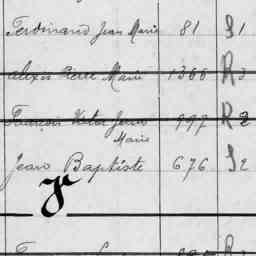 Ferdinand Jean Marie 81 S 1
Alexis Pierre Marie 1366 R 3
François Victor Jean 997 R 2
Marie
Jean Baptiste 676 S 2